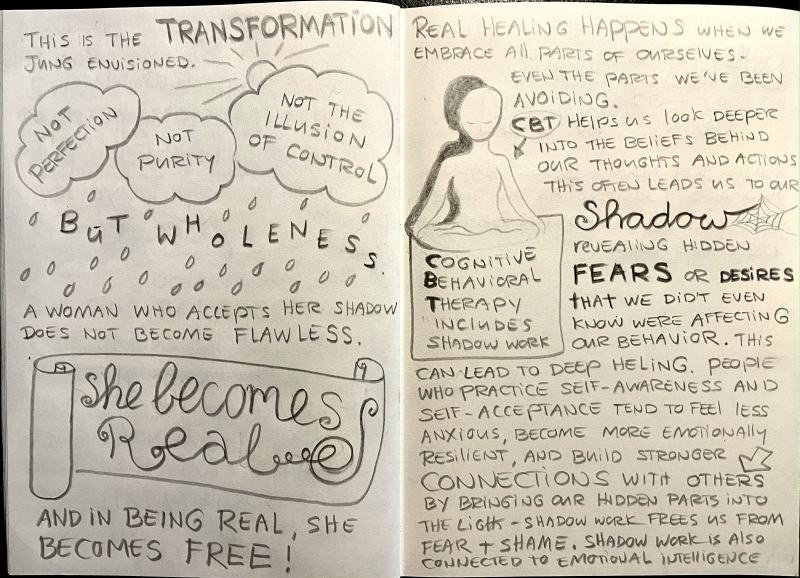 THIS IS THE TRANSFORMATION
JUNG ENVISIONED.
NOT
PERFECTION
NOT
PURITY
NOT THE
ILLUSION
OF CONTROL
BUT WHOLENESS.
A WOMAN WHO ACCEPTS HER SHADOW
DOES NOT BECOME FLAWLESS.
She becomes
Real
AND IN BEING REAL, SHE
BECOMES FREE!
REAL HEALING HAPPENS WHEN WE
EMBRACE All PARTS OF OURSELVES.
EVEN THE PARTS WE'VE BEEN
AVOIDING.
CBT HELPS US lOOK DEEPER
INTO THE BELIEFS BEHIND
OUR THOUGHTS AND ACTIONS
THIS OFTEN LEADS US TO OUR
Shadow
REVEALING HIDDEN
FEARS OR DESIRES
tHAT WE DID'T EVEN
KNOW WERE AFFECTING
OUR BEHAVIOR. THIS
COGNITIVE
BEHAVIORAL
THERAPY
INCLUDES
SHADOW WORK
CAN LEAD TO DEEP HELING. PEOPlE
WHO PRACTICE SELF-AWARENESS AND
SELF-ACCEPTANCE TEND TO FEEL lESS
ANXIOUS, BECOME MORE EMOTIONALLY
RESILIENT, AND BUILD STRONGER
CONNECTIONS WITH OTHERS
BY BRINGING OUR HIDDEN PARTS INTO
THE LIGHt - SHADOW WORK FREES US FROM
FEAR + SHAME. SHADOW WORK IS ALSO
CONNECTED TO EMOTIONAL INTELLIGENCE